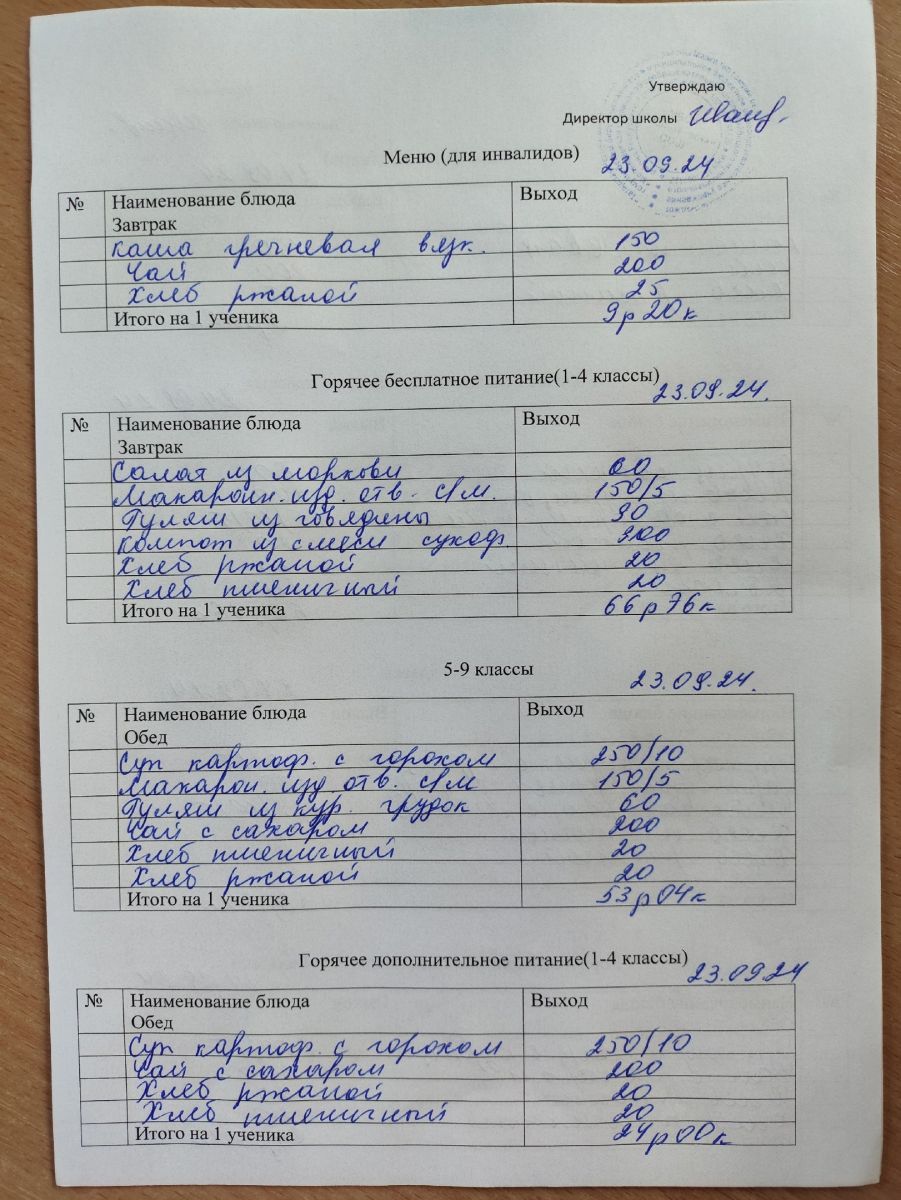 Утверждаю
Директор школы
Меню (для инвалидов)
23.09.24
№ Наименование блюда Выход
Завтрак
Каша гречневая вязк. 150
Чай 200
Хлеб ржаной 25
Итого на 1 ученика 9р20к
Горячее бесплатное питание(1-4 классы)
23.09.24.
№ Наименование блюда Выход
Завтрак
Салат из моркови 60
Макаронн. изд. отв. с/м. 150/5
Гуляш из говядины 90
Компот из смеси сухоф. 200
Хлеб ржаной 20
Хлеб пшеничный 20
Итого на 1 ученика 66р76к
5-9 классы
23.09.24.
№ Наименование блюда Выход
Обед
Суп картоф. с горохом 250/10
Макарон. изд. отв. с/м 150/5
Гуляш из кур. грудок 60
Чай с сахаром 200
Хлеб пшеничный 20
Хлеб ржаной 20
Итого на 1 ученика 53р04к
Горячее дополнительное питание(1-4 классы)
23.09.24
№ Наименование блюда Выход
Обед
Суп картоф. с горохом 250/10
Чай с сахаром 200
Хлеб ржаной 20
Хлеб пшеничный 20
Итого на 1 ученика 24р00к